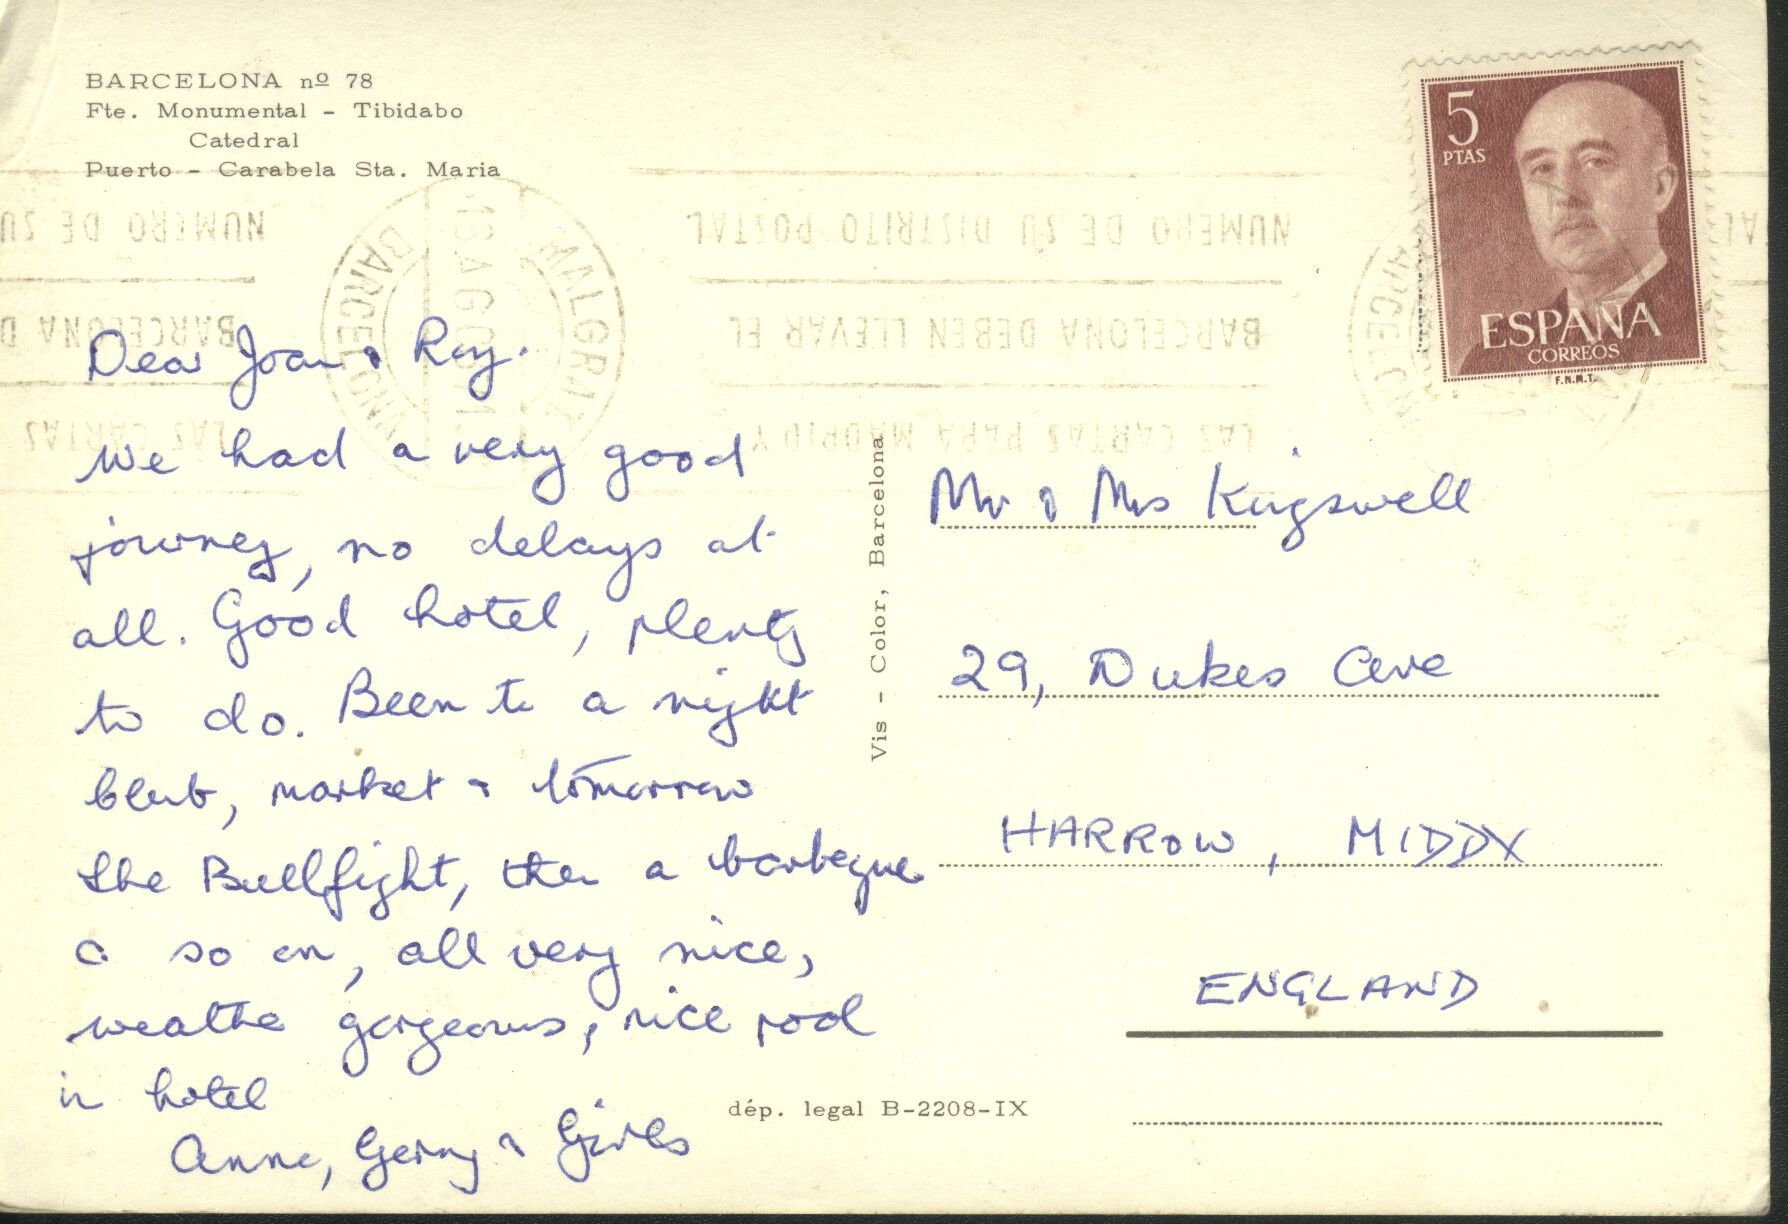 BARCELONA nº 78
Fte. Monumental - Tibidabo
Catedral
Puerto - Carabela Sta. Maria
5
PTAS
ESPAÑA
CORREOS
F.N.M.T.
NUMERO DE SU DISTRITO POSTAL
BARCELONA DEBEN LLEVAR EL
LAS CARTAS PARA MADRID Y
NUMERO DE SU
BARCELONA D
LAS CARTAS
MALGRAT
BARCELONA
Dear Joan & Ray.
We had a very good
journey, no delays at
all. Good hotel, plenty
to do. Been to a night
club, market & tomorrow
the Bullfight, then a barbeque
& so on, all very nice,
weather gorgeous, nice pool
in hotel
Anne, Gerry & Girls
Vis - Color, Barcelona
Mr & Mrs Kingswell
29, Dukes Ave
HARROW, MIDDX
ENGLAND
dép. legal B-2208-IX